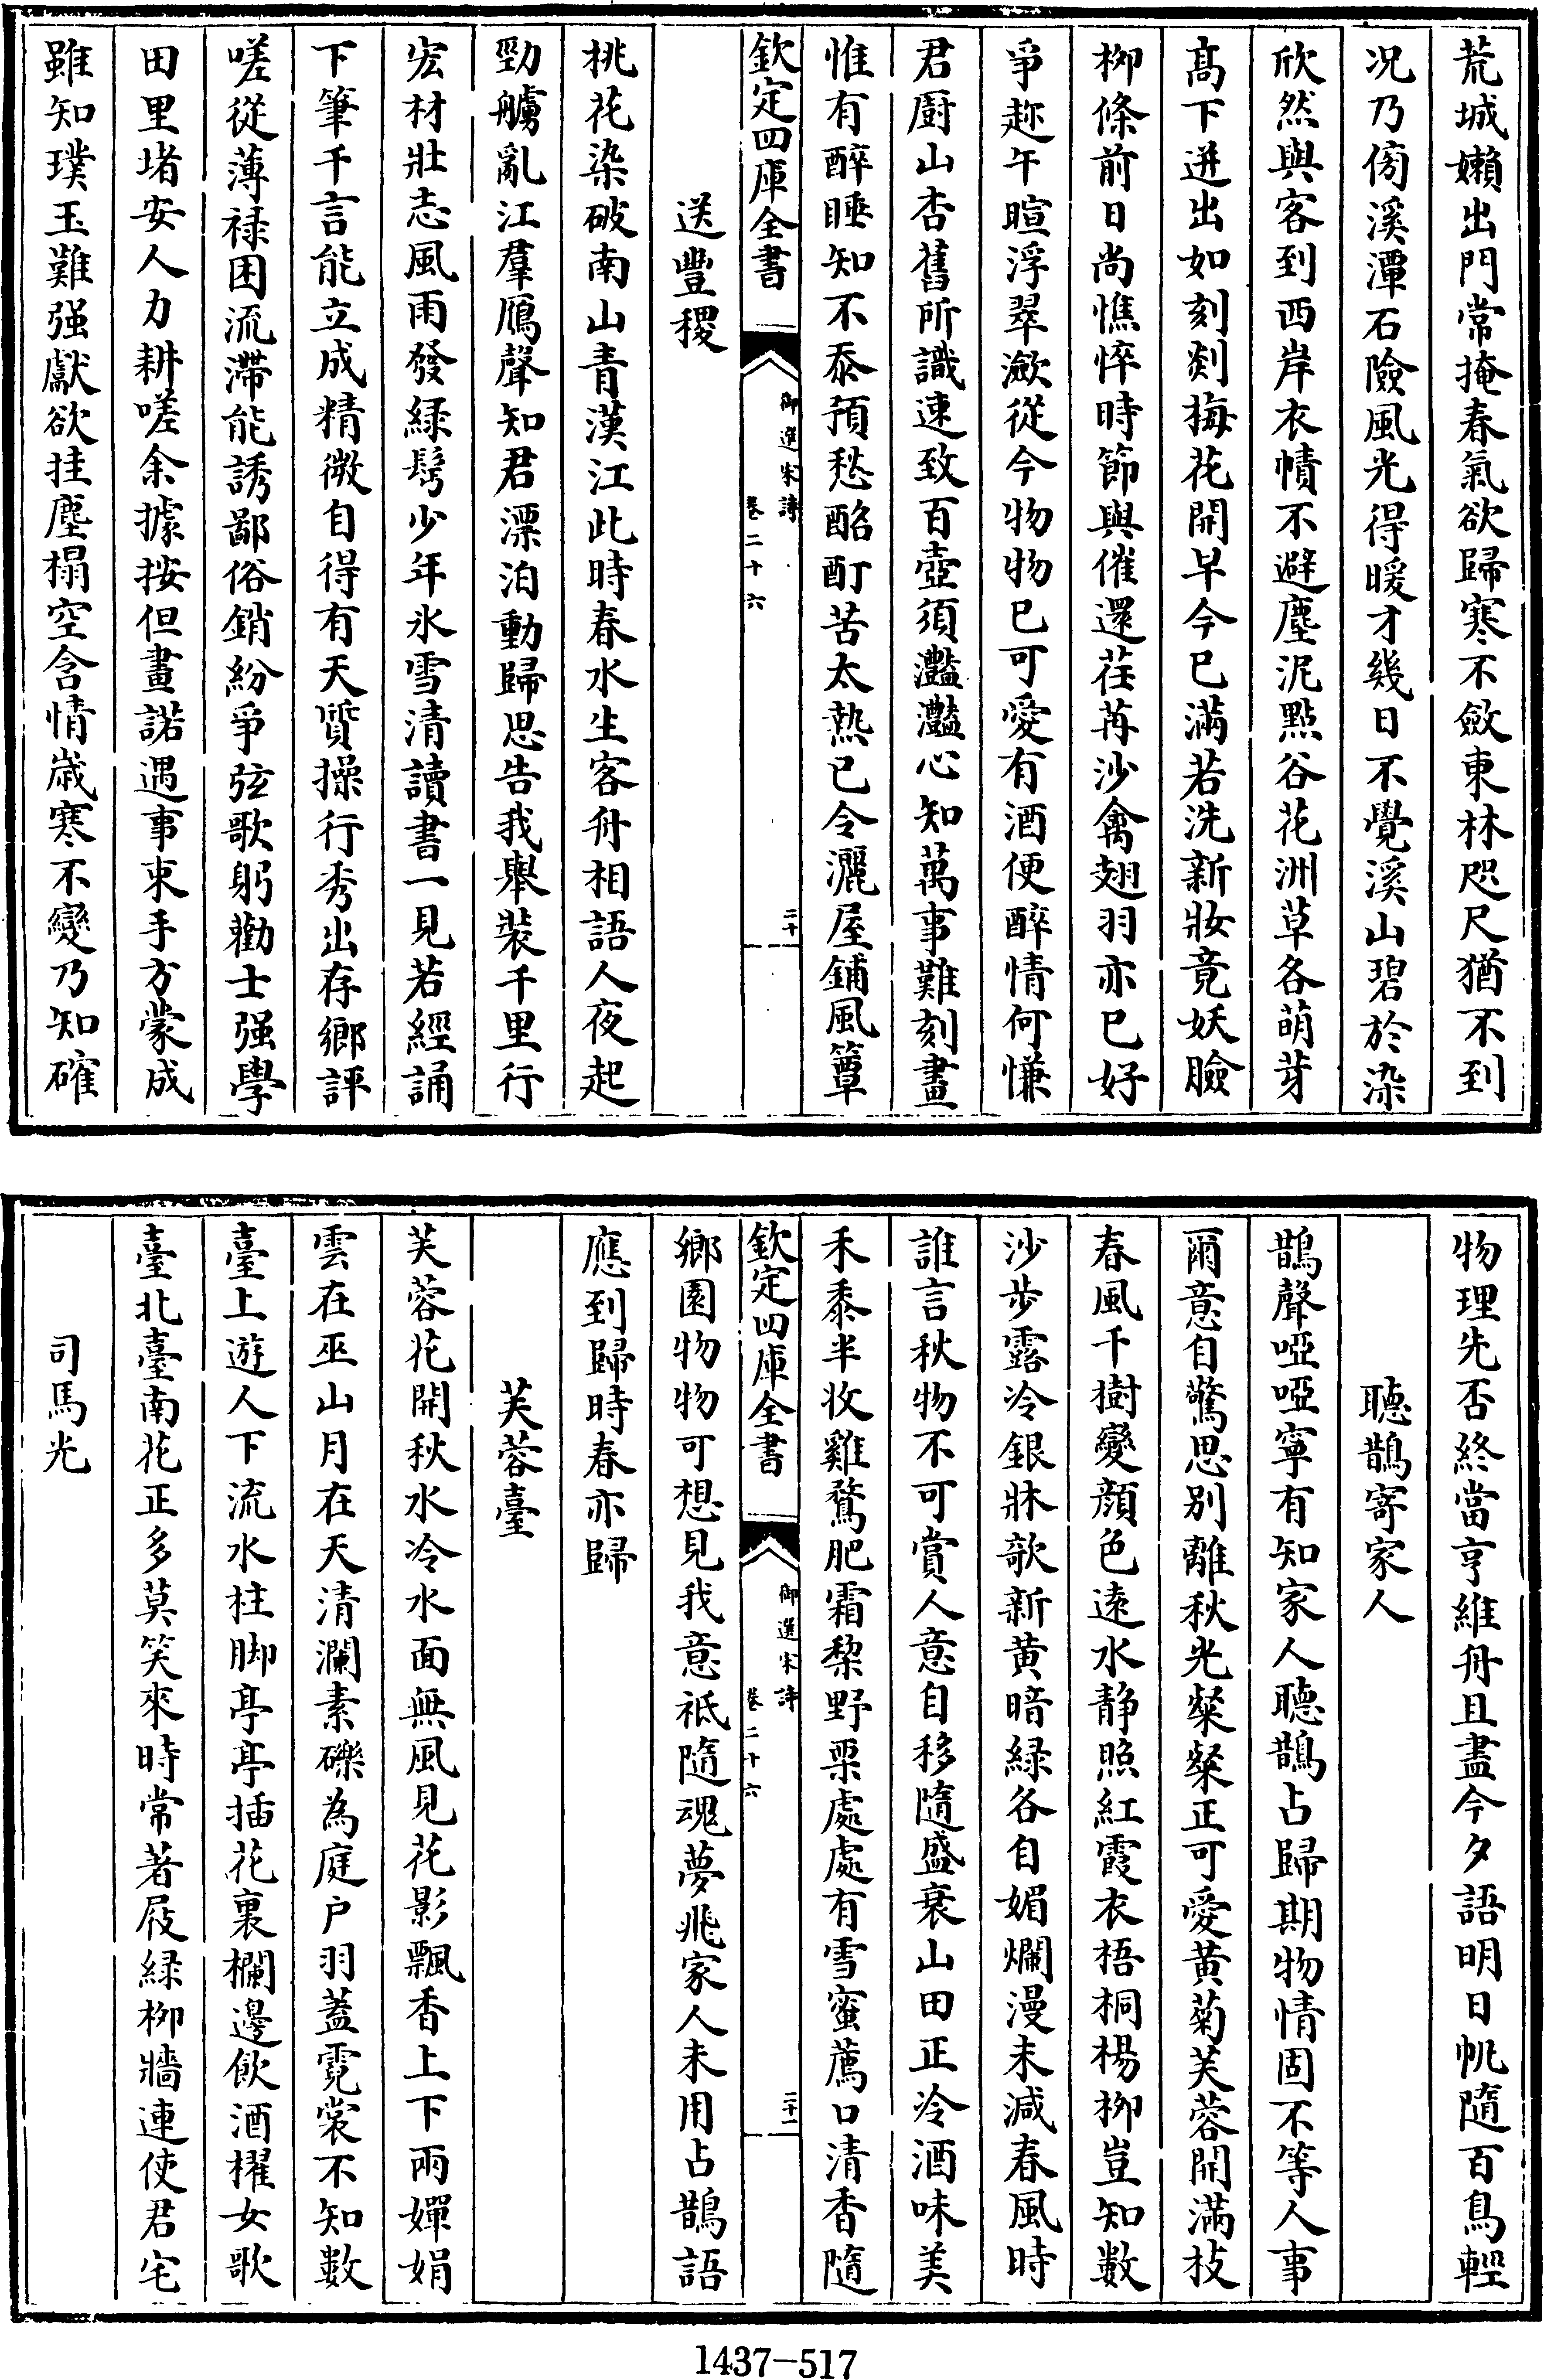 荒城嬾出門常掩春氣欲歸寒不斂東林咫尺猶不到
况乃傍溪潭石險風光得暖才幾日不覺溪山碧於染
欣然與客到西岸衣幘不避塵泥點谷花洲草各萌芽
髙下迸出如刻剡梅花開早今巳滿若洗新妝竟妖臉
栁條前日尚憔悴時節與催還荏苒沙禽翅羽亦巳好
爭趂午暄浮翠瀲從今物物巳可愛有酒便醉情何慊
君廚山杏舊所識速致百壺須灩灩心知萬事難刻畫
惟有醉睡知不忝預愁酩酊苦太熱已令灑屋鋪風簟
欽定四庫全書
御選宋詩
卷二十六
二十
送豐稷
桃花染破南山青漢江此時春水生客舟相語人夜起
勁艣亂江羣鴈聲知君漂泊動歸思告我舉裝千里行
宏材壯志風雨發緑髩少年氷雪清讀書一見若經誦
下筆千言能立成精微自得有天質操行秀出存鄉評
嗟從薄禄困流滯能誘鄙俗銷紛爭弦歌躬勸士强學
田里堵安人力耕嗟余據按但畫諾遇事束手方蒙成
雖知璞玉難强獻欲挂塵榻空含情歳寒不變乃知確
物理先否終當亨維舟且盡今夕語明日帆隨百鳥輕
聽鵲寄家人
鵲聲啞啞寧有知家人聽鵲占歸期物情固不等人事
爾意自驚思别離秋光粲粲正可愛黄菊芙蓉開滿枝
春風千樹變顔色逺水静照紅霞衣梧桐楊栁豈知數
沙步露冷銀牀欹新黄暗緑各自媚爛漫未減春風時
誰言秋物不可賞人意自移隨盛衰山田正冷酒味美
禾黍半收雞鶩肥霜梨野栗處處有雪蜜薦口清香隨
欽定四庫全書
御選宋詩
卷二十六
二十一
鄉園物物可想見我意祗隨魂夢飛家人未用占鵲語
應到歸時春亦歸
芙蓉臺
芙蓉花開秋水冷水面無風見花影飄香上下兩嬋娟
雲在巫山月在天清瀾素礫為庭户羽蓋霓裳不知數
臺上遊人下流水柱脚亭亭插花裏欄邊飲酒櫂女歌
臺北臺南花正多莫笑來時常著屐緑栁牆連使君宅
司馬光
1437-517